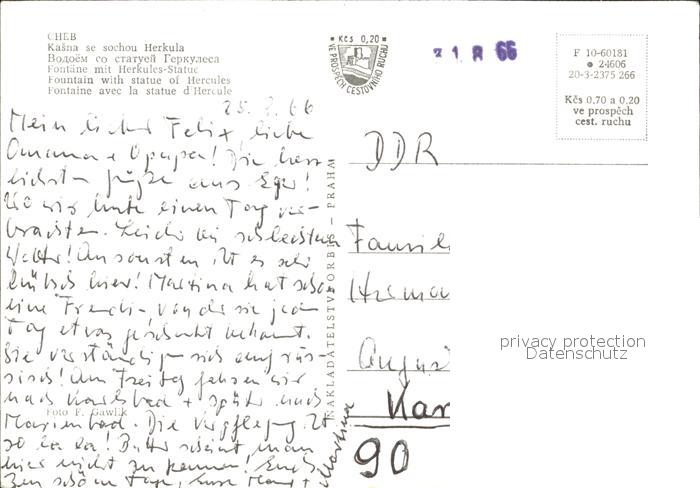 CHEB
Kašna se sochou Herkula
Водоём со статуей Геркулеса
Fontäne mit Herkules-Statue
Fountain with statue of Hercules
Fontaine avec la statue d'Hercule
Kčs 0,20
VE PROSPĚCH CESTOVNÍHO RUCHU
F 10-60181
24606
20-3-2375 266
Kčs 0,70 a 0,20
ve prospěch
cest. ruchu
66
Mein lieber Felix, liebe
Omama + Opapa! Die herz-
lichsten Grüße aus Eger!
Wo wir heute einen Tag ver-
brachten. Leider bei schlechtem
Wetter! Ansonsten ist es sehr
hübsch hier! Martina hat schon
eine Freundin, von der sie jeden
Tag etwas geschenkt bekommt.
Sie verständigen sich auf rus-
sisch! Am Freitag fahren wir
nach Karlsbad + später nach
Marienbad. Die Verpflegung ist
so la la! Butter scheint man
hier nicht zu kennen! Euch
schöne Tage, Eure
Martina
Foto F. Gawlik
NAKLADATELSTVÍ ORBIS – PRAHA
DDR
Famili
August
90
privacy protection
Datenschutz